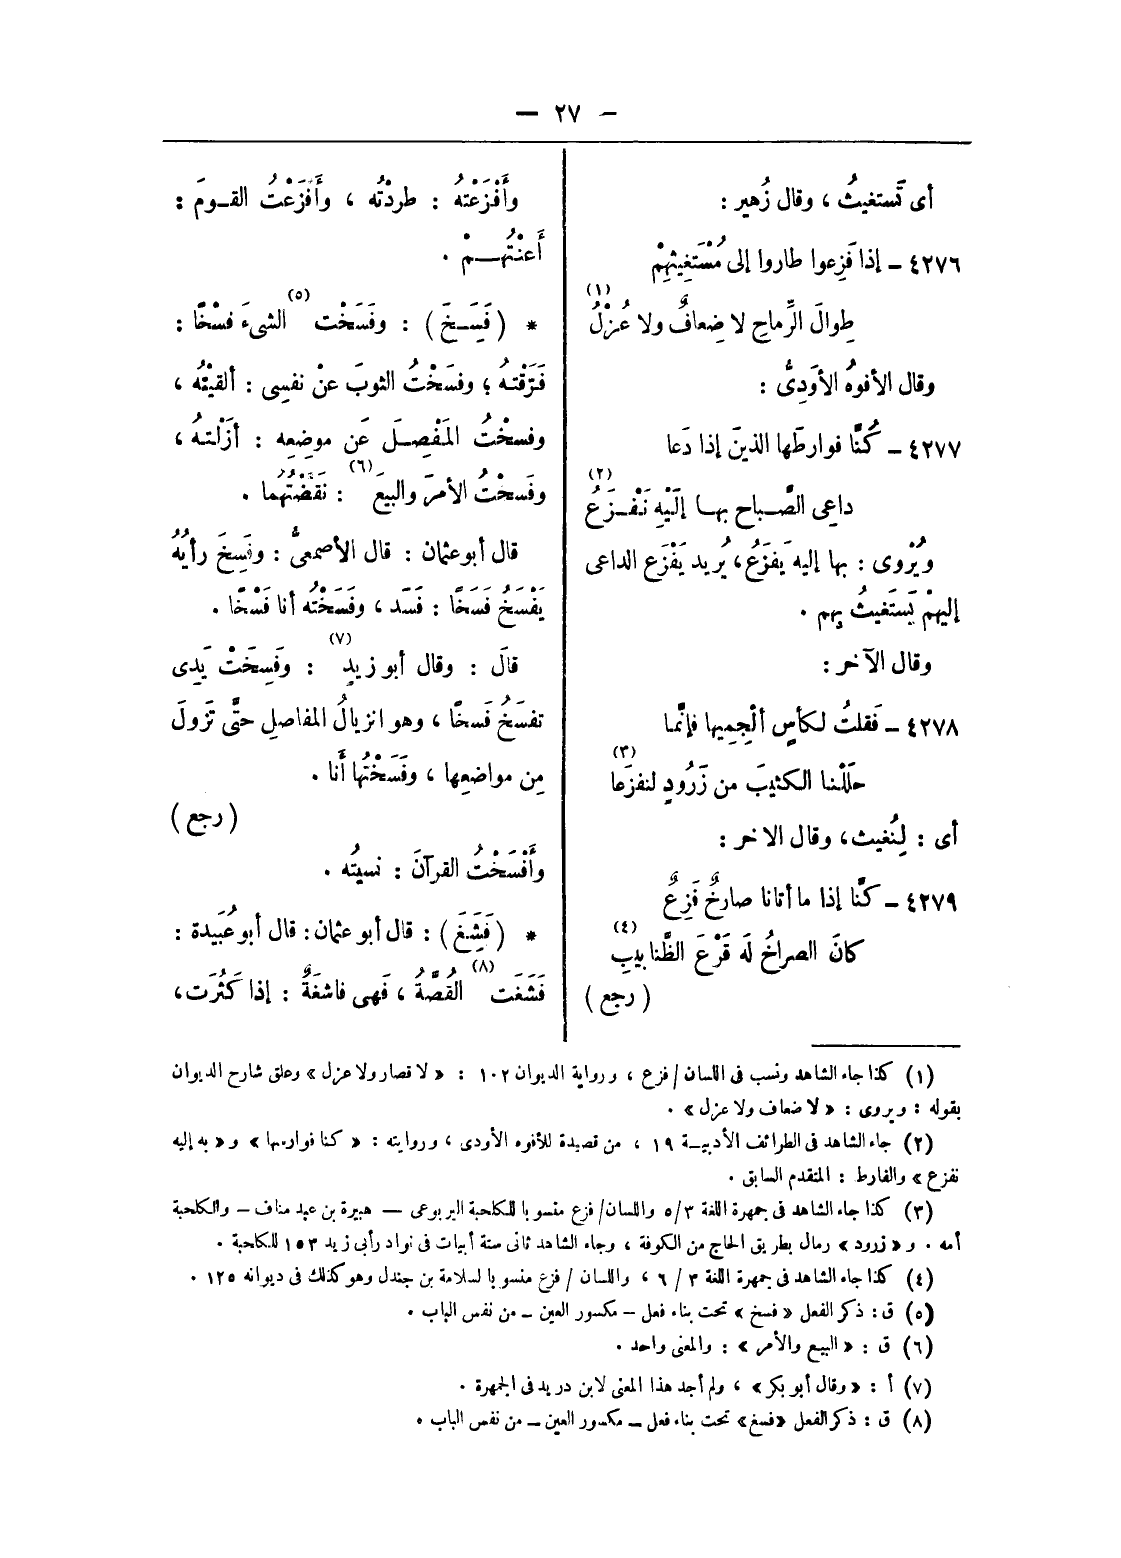 — ٢٧ —
أى تَستغيثُ ، وقال زُهير :
٤٢٧٦ – إذا فَزِعوا طاروا إلى مُسْتَغِيثِهِمْ
طِوالَ الرِّماحِ لا ضِعافٌ ولا عُزْلُ (١)
وقال الأفوهُ الأوَدِىُّ :
٤٢٧٧ – كُنَّا فوارطَها الذينَ إذا دَعا
داعِى الصَّباح بها إلَيْهِ نَفْزَعُ (٢)
ويُرْوى : بها إليه يَفزَعُ، يُريد يَفْزَع الداعى
إليهمْ يَسْتَغيثُ بِهم .
وقال الآخر :
٤٢٧٨ – فَقلتُ لكأسٍ ألْجِمِيها فإنَّما
حلَلْنا الكثيبَ من زَرُودٍ لنفزَعا (٣)
أى : لِنُغيث، وقال الاخر :
٤٢٧٩ – كنَّا إذا ما أتانا صارخٌ فَزِعٌ
كانَ الصراخُ لَه قَرْعَ الظَّنابيبِ (٤)
( رجع )
وأَفْزَعْتهُ : طردْتُه ، وأَفزَعْتُ القومَ :
أَعنْتُهُمْ .
* ( فَسِخَ ) : وفَسَخْت (٥) الشىءَ فسْخًا :
فَرَّقْتهُ ؛ وفسَخْتُ الثوبَ عنْ نفسِى : ألقيْتُه ،
وفسخْتُ المَفْصِلَ عَن موضِعِه : أزَلْتهُ ،
وفَسخْتُ الأمرَ والبيعَ (٦) : نَقَضْتُهما .
قال أبوعثمان : قال الأصمعىُّ : وفَسِخَ رأيُهُ
يَفْسَخُ فَسَخًا : فَسَد ، وفَسَخْتُه أنا فَسْخًا .
قالَ : وقال أبو زيدٍ (٧) : وفَسِخَتْ يَدِى
تفسَخُ فَسخًا ، وهو انزيالُ المفاصلِ حتَّى تَزولَ
مِن مواضعِها ، وفَسَخْتُها أَنا .
( رجع )
وأَفْسَخْتُ القرآنَ : نسيتُه .
* ( فَشِغَ ) : قال أبو عثمان: قال أبو عُبَيدة :
فَشَغَت (٨) القُصَّةُ ، فَهى فاشغَةٌ : إذا كَثُرَت،
(١) كذا جاء الشاهد ونسب فى اللسان / فزع ، ورواية الديوان ١٠٢ : « لا قصار ولا عزل » وعلق شارح الديوان
بقوله : ويروى : « لا ضعاف ولا عزل » .
(٢) جاء الشاهد فى الطرائف الأدبية ١٩ ، من قصيدة للأفوه الأودى ، وروايته : « كنا فوارسها » و « به إليه
نفزع » والفارط : المتقدم السابق .
(٣) كذا جاء الشاهد فى جمهرة اللغة ٥/٣ واللسان/ فزع منسوبا للكلحبة اليربوعى — هبيرة بن عبد مناف – والكلحبة
أمه . و « زرود » رمال بطريق الحاج من الكوفة ، وجاء الشاهد ثانى ستة أبيات فى نوادر أبى زيد ١٥٣ للكلحبة .
(٤) كذا جاء الشاهد فى جمهرة اللغة ٣ / ٦ ، واللسان / فزع منسوبا لسلامة بن جندل وهو كذلك فى ديوانه ١٢٥ .
(٥) ق : ذكر الفعل « فسخ » تحت بناء فعل – مكسور العين – من نفس الباب .
(٦) ق : « البيع والأمر » : والمعنى واحد .
(٧) أ : « وقال أبو بكر » ، ولم أجد هذا المعنى لابن دريد فى الجمهرة .
(٨) ق : ذكر الفعل «فسغ» تحت بناء فعل – مكسور العين – من نفس الباب .